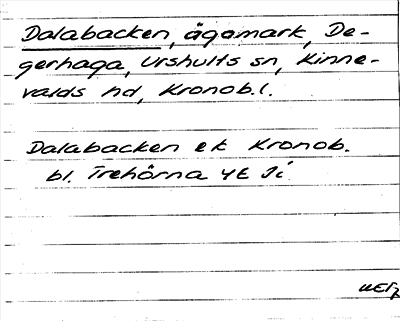 Dalabacken, ägomark, De-
gerhaga, Urshults sn, Kinne-
valds hd, Kronob. l.
Dalabacken ek Kronob.
bl. Trehörna 4E